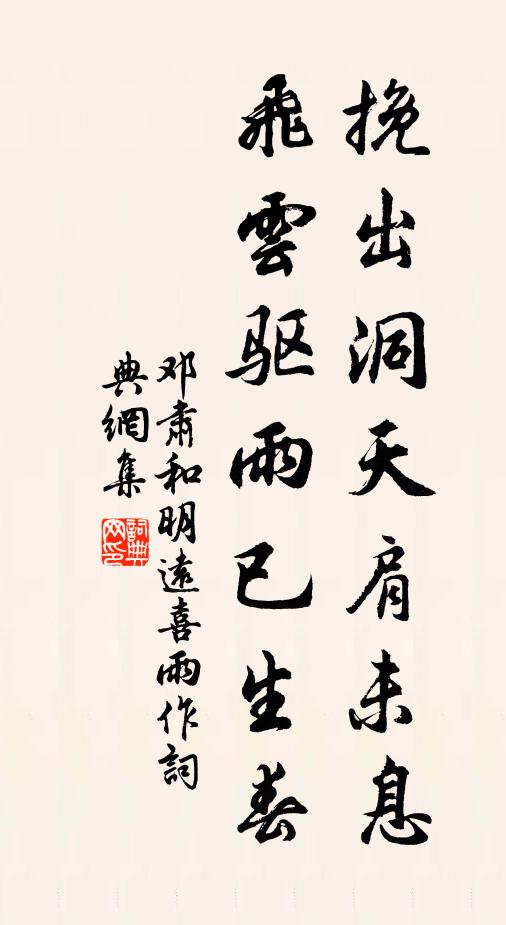 挽出洞天肩未息
飛雲驱雨已生春
邓肅和明遠喜雨作詞
典網集
詞典
网印